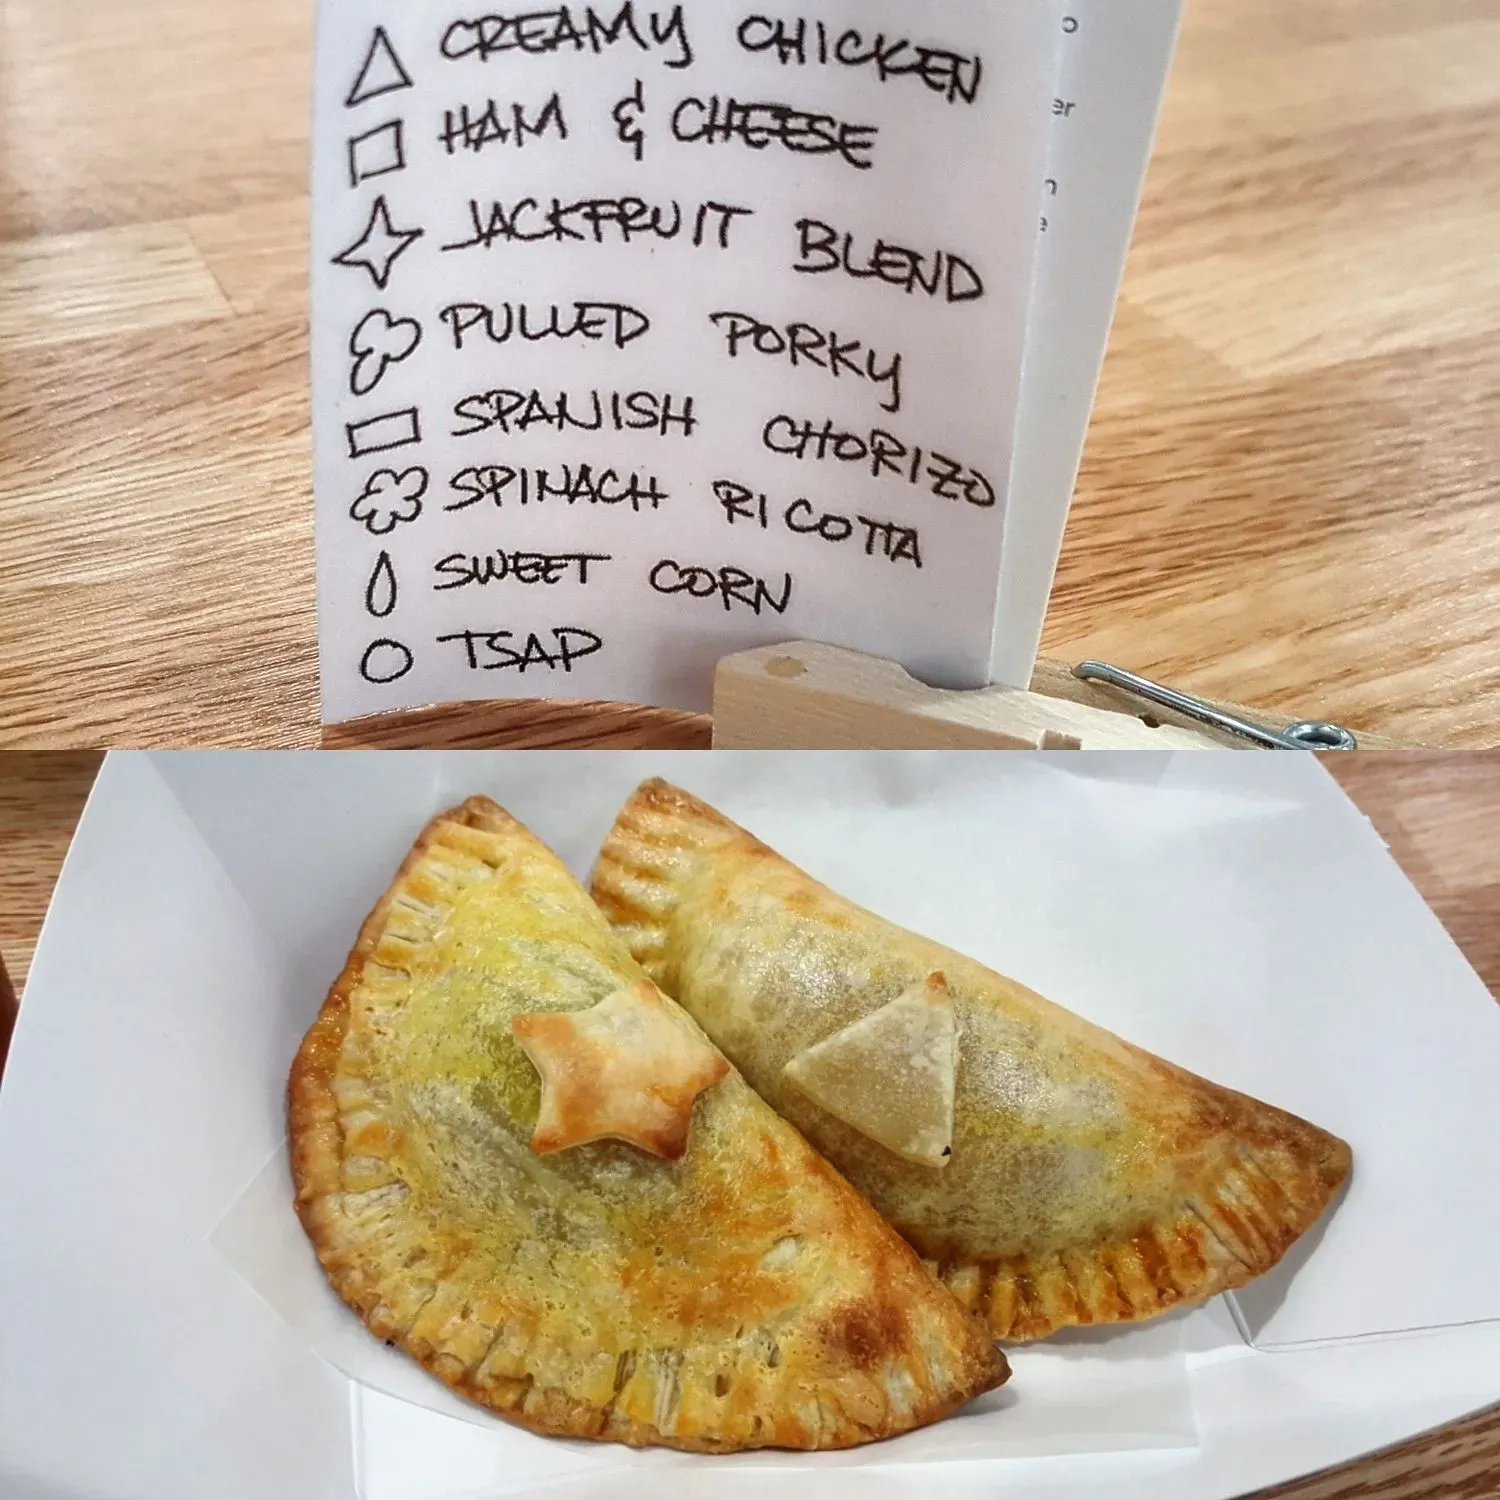 CREAMY CHICKEN
HAM & CHEESE
JACKFRUIT BLEND
PULLED PORKY
SPANISH CHORIZO
SPINACH RICOTTA
SWEET CORN
TSAP